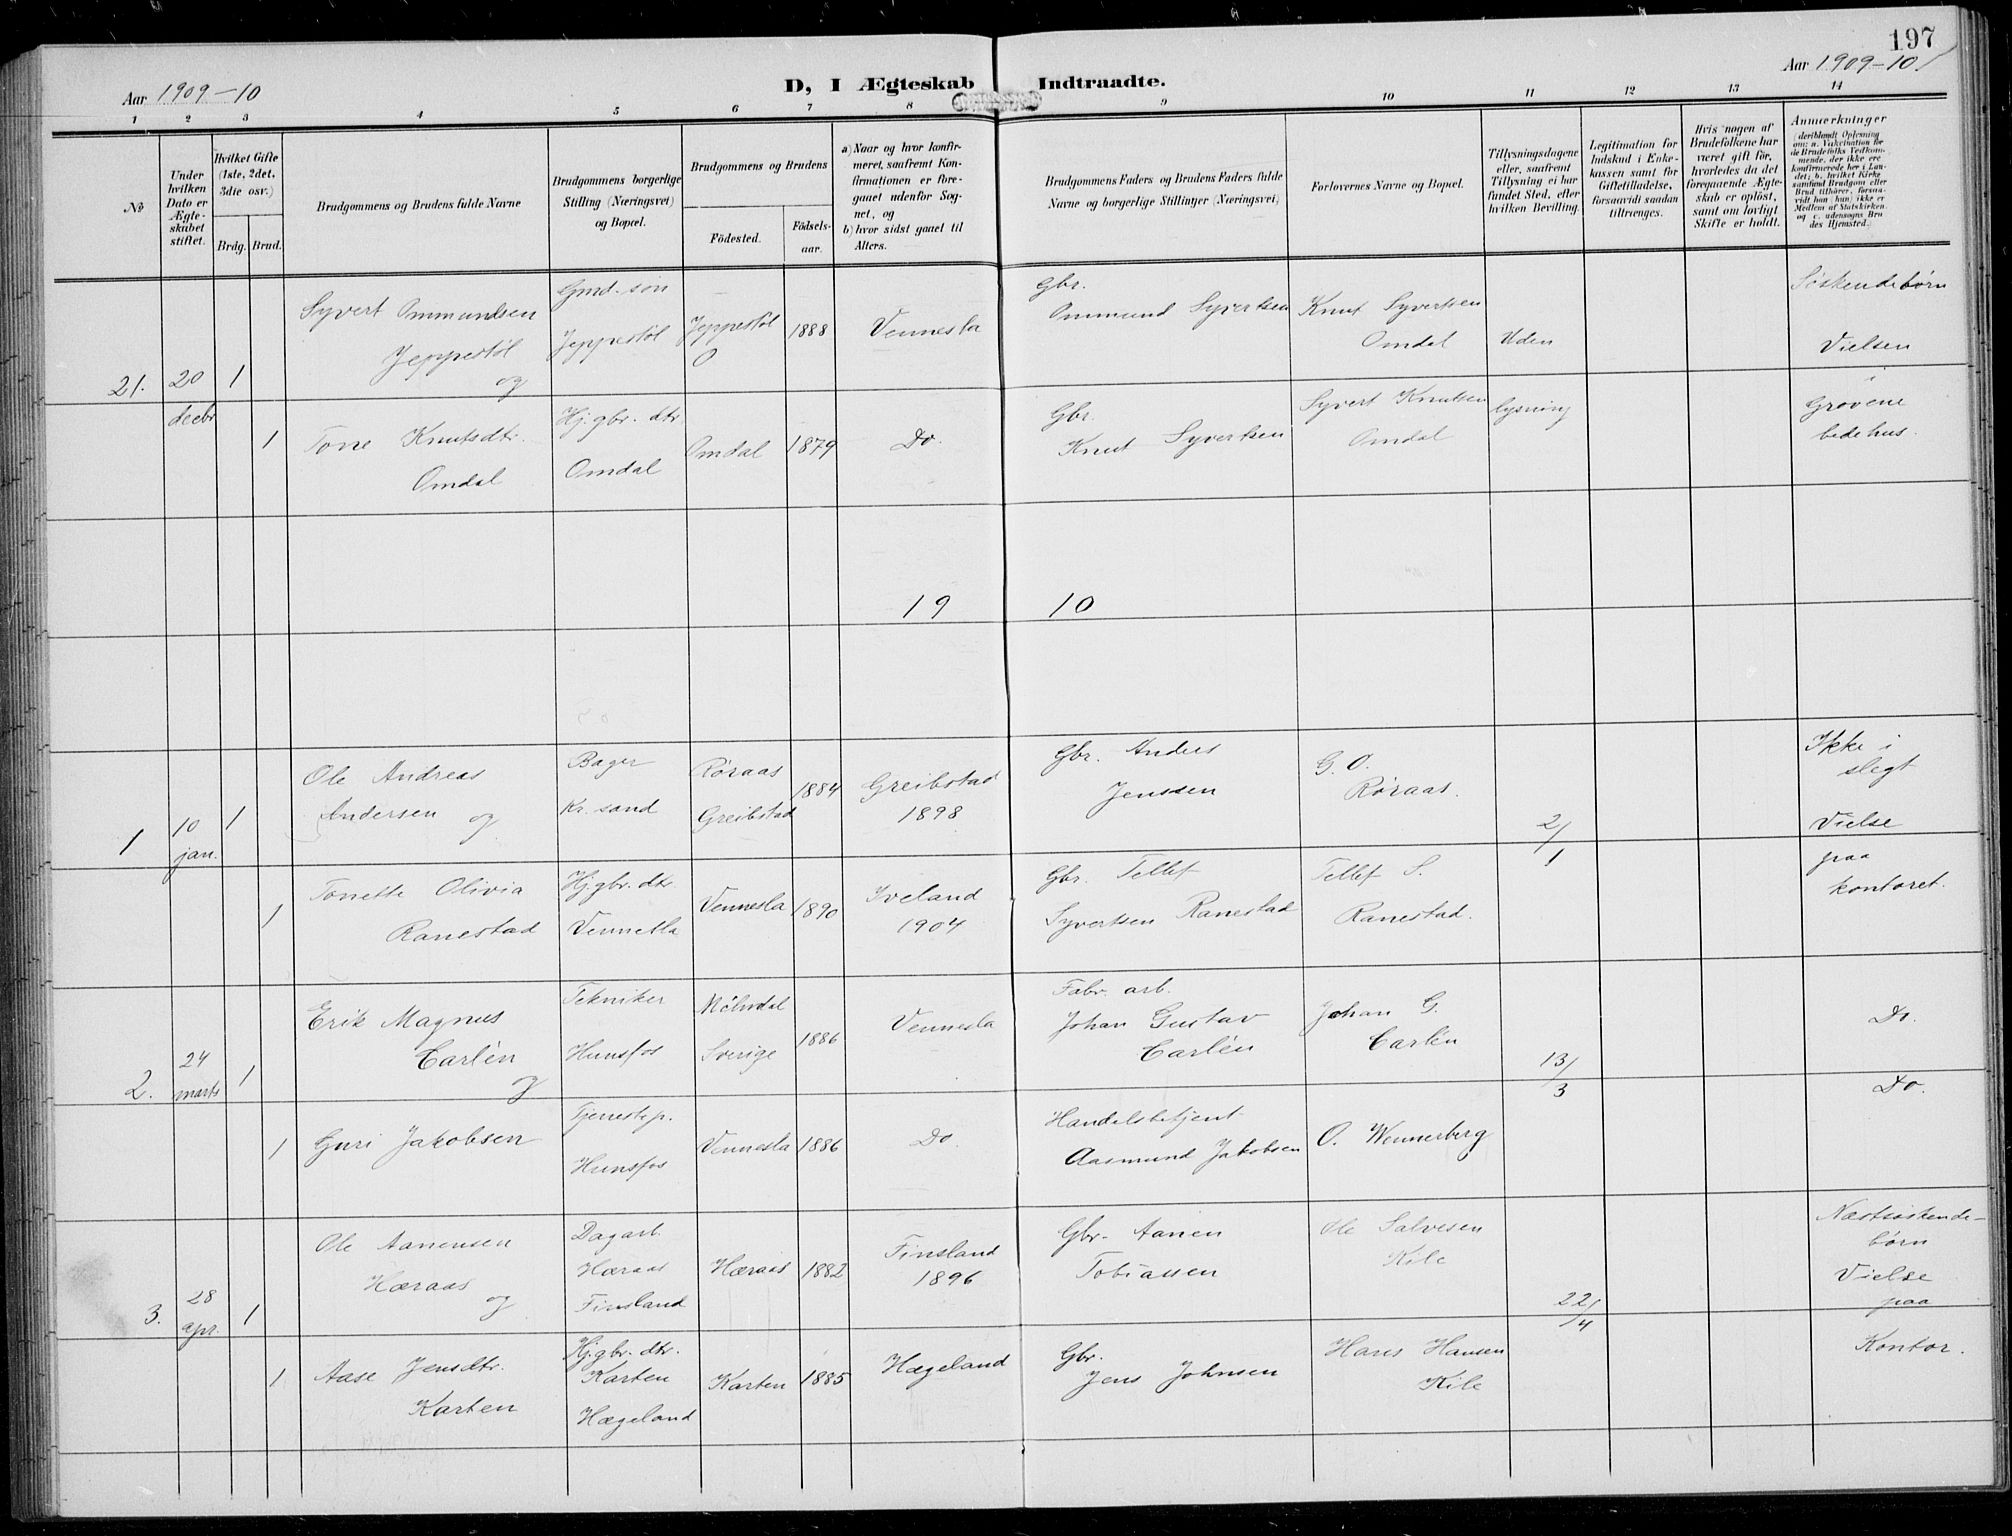 197
Aar 1909-10
D, I Ægteskab Indtraadte.
Aar 1909-10
1 2 3 4 5 6 7 8 9 10 11 12 13 14
№
Under hvilken Dato er Ægteskabet stiftet.
Hvilket Gifte (1ste, 2det, 3die osv.)
Brdg. Brud.
Brudgommens og Brudens fulde Navne
Brudgommens borgerlige Stilling (Næringsvei) og Bopæl.
Brudgommens og Brudens
Födested. Födselsaar.
a) Naar og hvor konfirmeret, saafremt Konfirmationen er foregaaet udenfor Sognet, og
b) hvor sidst gaaet til Alters.
Brudgommens Faders og Brudens Faders fulde Navne og borgerlige Stillinger (Næringsvei)
Forlovernes Navne og Bopæl.
Tillysningsdagene eller, saafremt Tillysning ei har fundet Sted, efter hvilken Bevilling.
Legitimation for Indskud i Enkekassen samt for Giftetilladelse, forsaavidt saadan tiltrænges.
Hvis nogen af Brudefolkene har været gift för, hvorledes da det foregaaende Ægteskab er oplöst, samt om lovligt Skifte er holdt.
Anmærkninger
(deriblandt Oplysning om: a. Vaccination for de Brudefolks Vedkommende, der ikke ere konfirmerede her i Landet; b. hvilket Kirkesamfund Brudgom eller Brud tilhörer, forsaavidt han (hun) ikke er Medlem af Statskirken og c. udensogns Brudes Hjemsted.)
21. 20 decbr. 1
Syvert Ommundsen
Jeppestøl
og
Gmd. søn
Jeppestøl
Jeppestøl
O
1888
Vennesla
Gbr.
Ommund Syvertsen
Knut Syvertsen
Omdal
Uden
Søskendebørn
Vielsen
i
1
Tone Knutsdtr.
Omdal
Hj. gbr. dtr
Omdal
Omdal
1879
Do.
Gbr.
Knut Syvertsen
Syvert Knutsen
Omdal
lysning
Grovene
bedehus.
19 10
1 10 jan. 1
Ole Andreas
Andersen og
Bager
Kr. sand
Røraas
Greibstad
1884
Greibstad
1898
Gbr. Anders
Jenssen
G. O.
Røraas.
2/1
Ikke i
slegt
Vielse
1
Tonette Olivia
Ranestad
Hj. gbr. dtr.
Vennesla
Vennesla
1890
Iveland
1904
Gbr. Tellef
Syvertsen Ranestad
Tellef S.
Ranestad.
paa
kontoret.
2. 24 marts 1
Erik Magnus
Carlén
og
Tekniker
Hunsfos
Mölndal
Sverige
1886
Vennesla
Fabr. arb.
Johan Gustav
Carlén
Johan G.
Carlén
13/3
Do.
1
Guri Jakobsen
Tjenestep.
Hunsfos
Vennesla
1886
Do.
Handelsbetjent
Aasmund Jakobsen
O. Wennerberg
Do.
3. 28 apr. 1
Ole Aanensen
Hæraas
og
Dagarb.
Hæraas
Finsland
Hæraas
1882
Finsland
1896
Gbr. Aanen
Tobiassen
Ole Salvesen
Kile
22/4
Næstsøskende-
børn
Vielse
paa
1
Aase Jensdtr.
Karten
Hj. gbr. dtr.
Karten
Hægeland
Karten
1885
Hægeland
Gbr.
Jens Johnsen
Hans Hansen
Kile
Kontor.